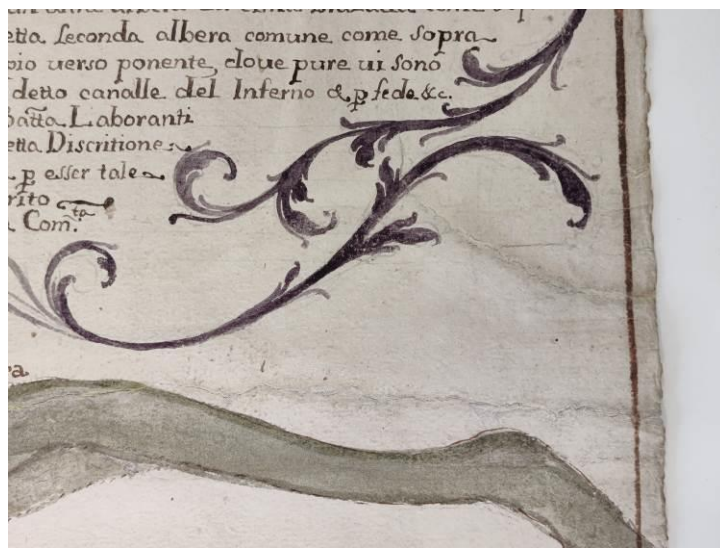 etta seconda albera comune come sopra
pio uerso ponente, doue pure ui sono
detto canalle del Inferno & p̱ fede &c.
batta Laboranti
etta Discritione
p̱ esser tale
rito
Com.ta
ra